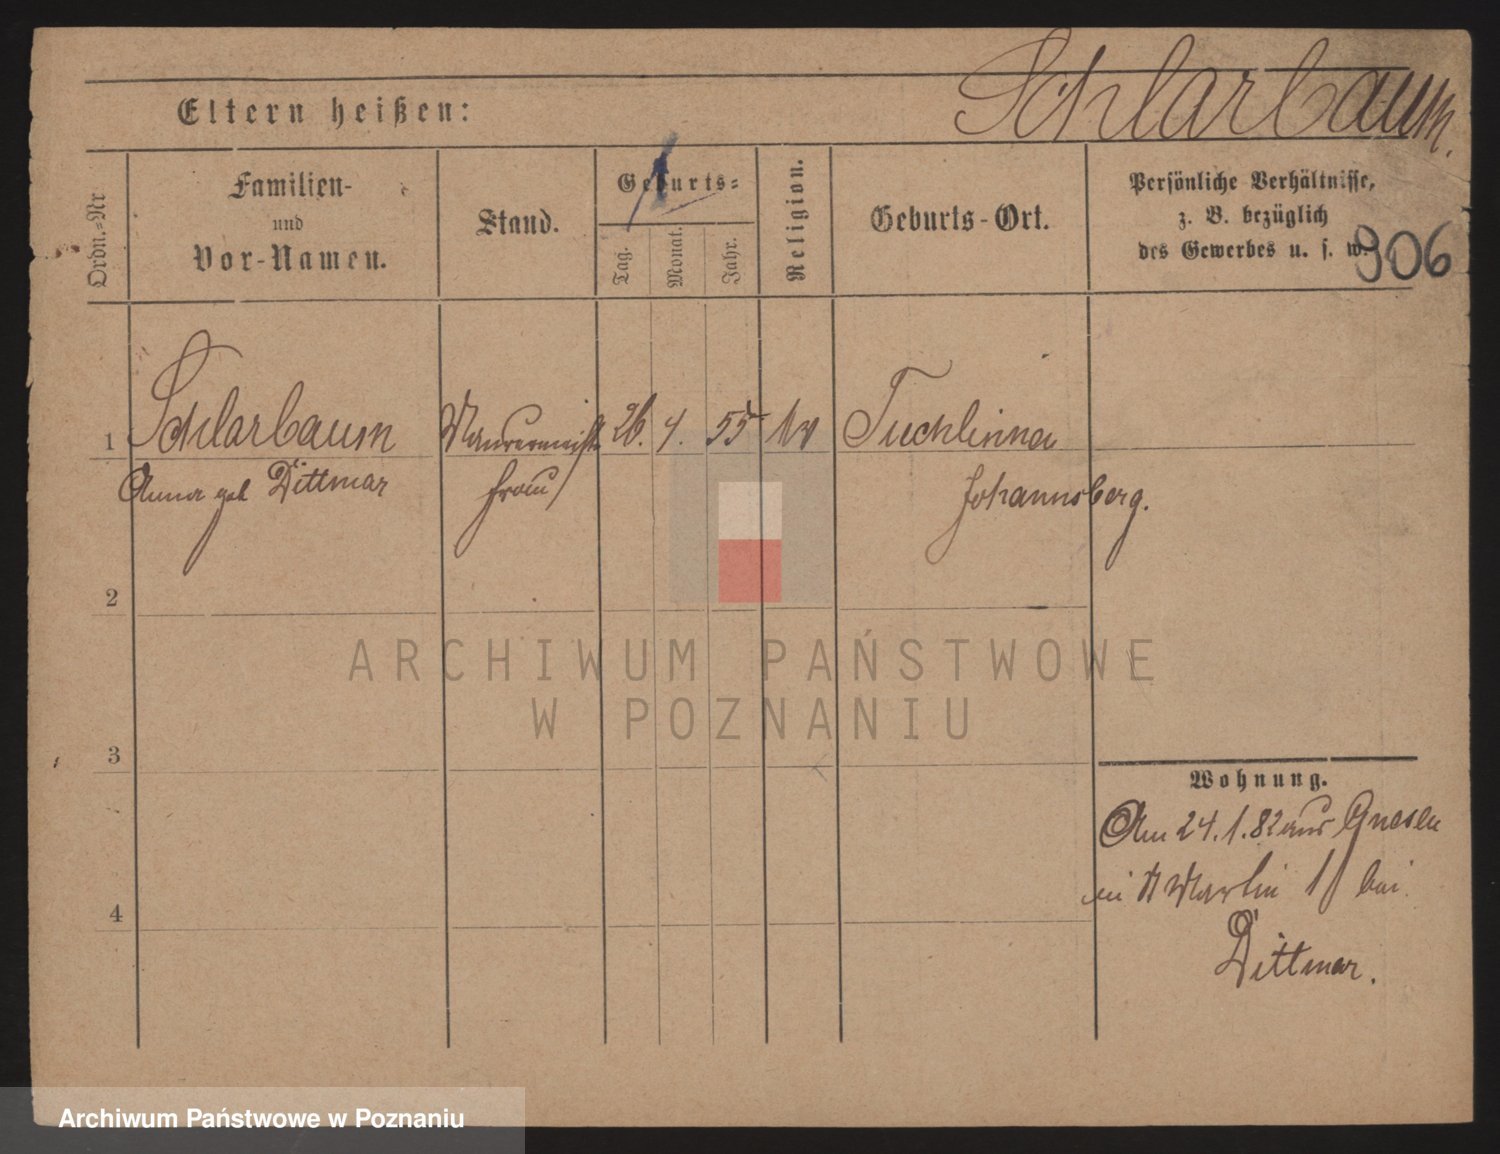 Schlarbaum.
Eltern heißen:
Ordn.=Nr
Familien-
und
Vor-Namen.
Stand.
Geburts=
Tag.
Monat.
Jahr.
Religion.
Geburts-Ort.
Persönliche Verhältnisse,
z. B. bezüglich
des Gewerbes u. s. w.
906
1
Schlarbaum
Maurermeist
26. 4. 55
ev
Tuchlinna
Anna geb Dittmar
frau
Johannsberg.
2
ARCHIWUM PAŃSTWOWE
W POZNANIU
3
Wohnung.
Am 24.1.82 aus Gnesen
Martin bei
4
Dittmar.
Archiwum Państwowe w Poznaniu